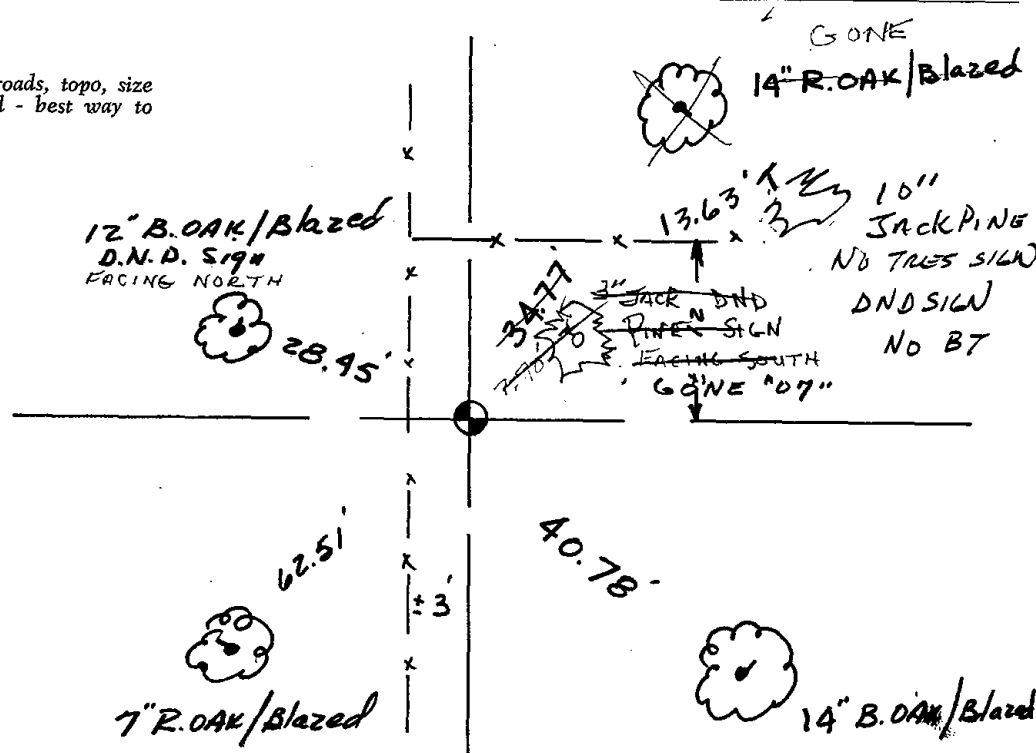 roads, topo, size
l - best way to
GONE
14" R. OAK/Blazed
12" B. OAK/Blazed
D.N.D. Sign
FACING NORTH
28.45'
13.63'
10"
JACK PINE
NO TRES SIGN
DND SIGN
NO BT
34.77'
3" JACK DND
PINE SIGN
FACING SOUTH
GONE "07"
62.51'
40.78'
± 3'
7" R. OAK/Blazed
14" B. OAK/Blazed